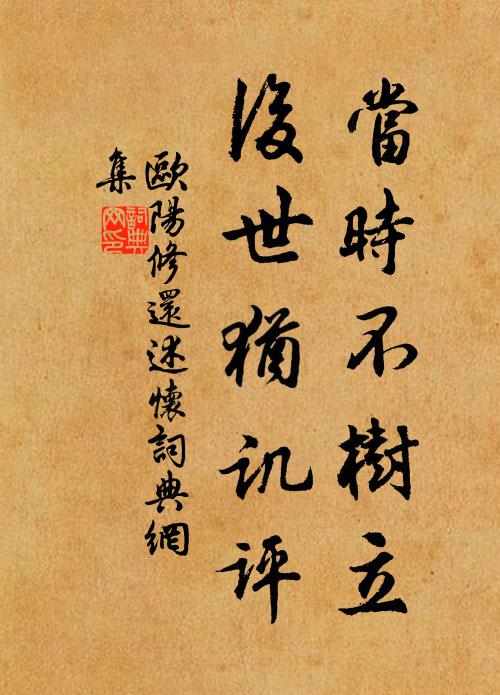 當時不樹立
後世猶譏評
歐陽修還述懷詞典網
集
詞典網印